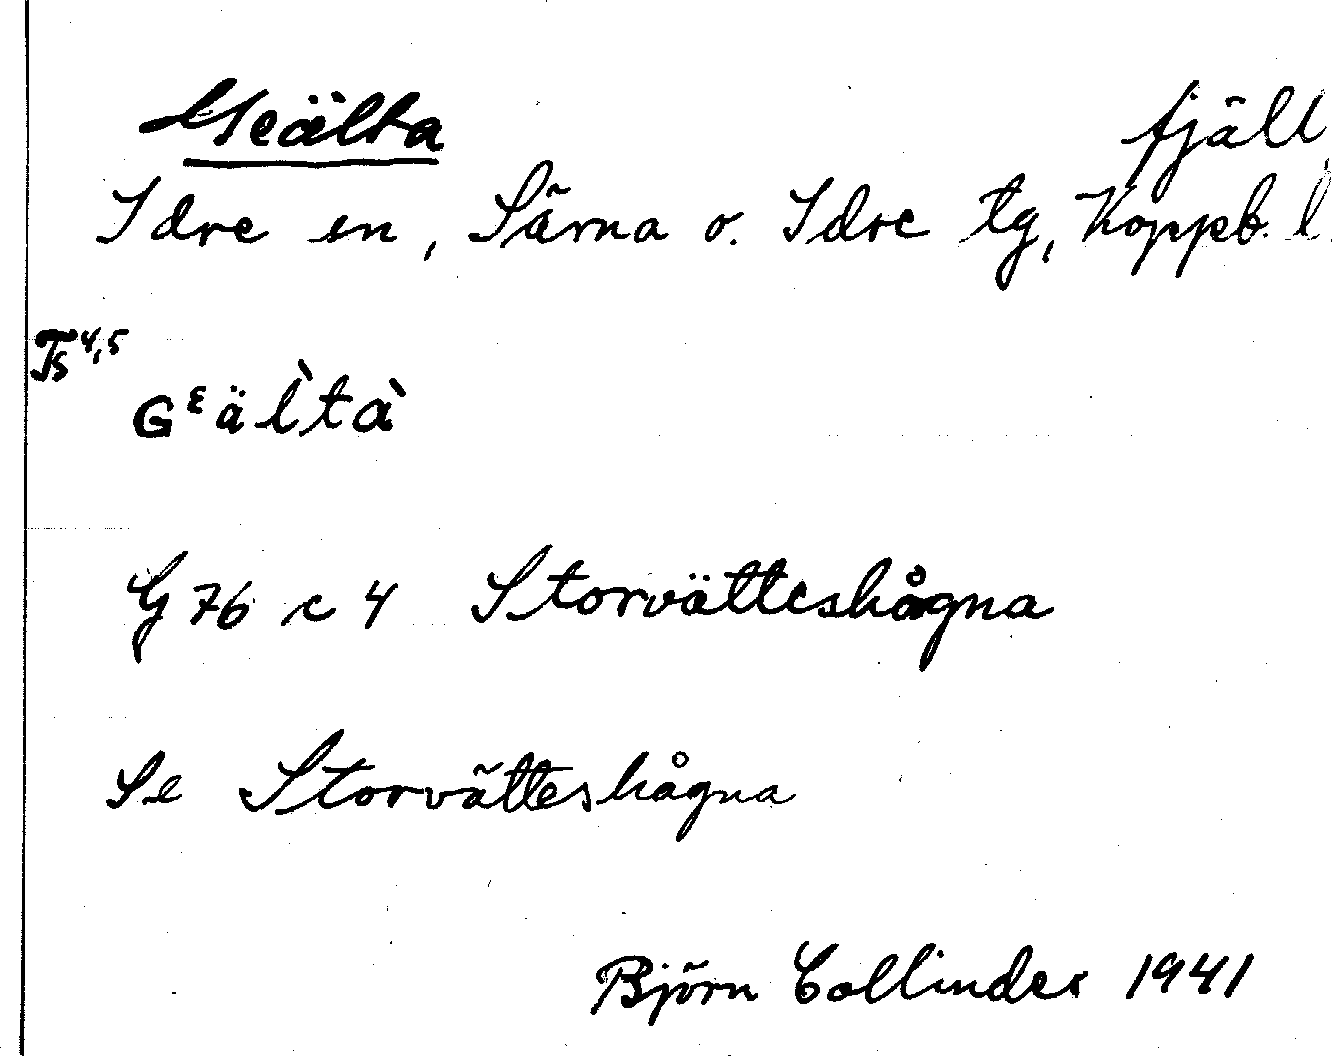 Geälta fjäll
Idre sn, Särna o. Idre tg, Koppb. l.
Ts 4,5
Gᵋäl̀tà
G 76 c 4 Storvätteshågna
Se Storvätteshågna
Björn Collinder 1941